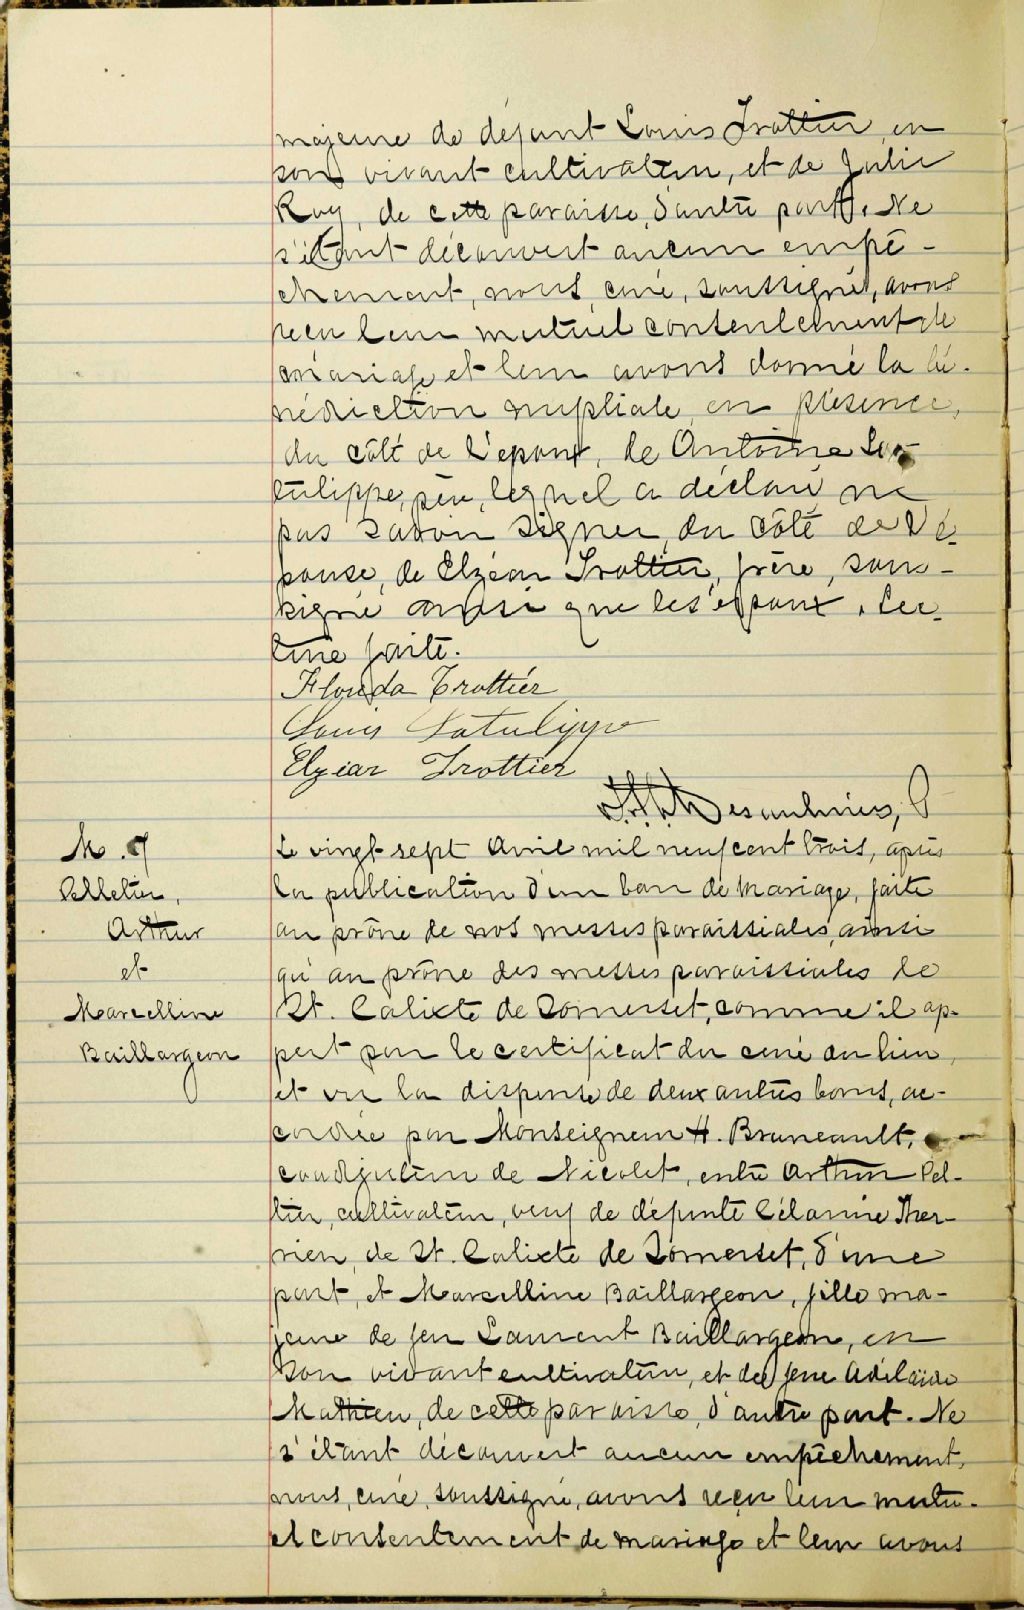 majeure de défunt Louis Trottier, en
son vivant cultivateur, et de Julie
Roy, de cette paroisse, d'autre part. Ne
s'étant découvert aucun empê-
chement, nous, curé, soussigné, avons
reçu leur mutuel consentement de
mariage et leur avons donné la bé-
nédiction nuptiale en présence,
du côté de l'époux, de Antoine La-
tulippe, père, lequel a déclaré ne
pas savoir signer, du côté de l'é-
pouse, de Elzéar Trottier, frère, sous-
signé ainsi que les époux. Lec-
ture faite.
Florida Trottier
Louis Latulippe
Elzear Trottier
Desaulniers, P
M. 7
Pelletier,
Arthur
et
Marcelline
Baillargeon
Le vingt sept Avril mil neuf cent trois, après
la publication d'un ban de mariage, faite
au prône de nos messes paroissiales, ainsi
qu'au prône des messes paroissiales de
St. Calixte de Somerset, comme il ap-
pert par le certificat du curé du lieu,
et vu la dispense de deux autres bans, ac-
cordée par Monseigneur H. Bruneault,
coadjuteur de Nicolet, entre Arthur Pel-
tier, cultivateur, veuf de défunte Célanire Ther-
rien, de St. Calixte de Somerset, d'une
part, et Marcelline Baillargeon, fille ma-
jeure de feu Laurent Baillargeon, en
son vivant cultivateur, et de feue Adélaïde
Mathieu, de cette paroisse, d'autre part. Ne
s'étant découvert aucun empêchement,
nous, curé, soussigné, avons reçu leur mutu-
el consentement de mariage et leur avons